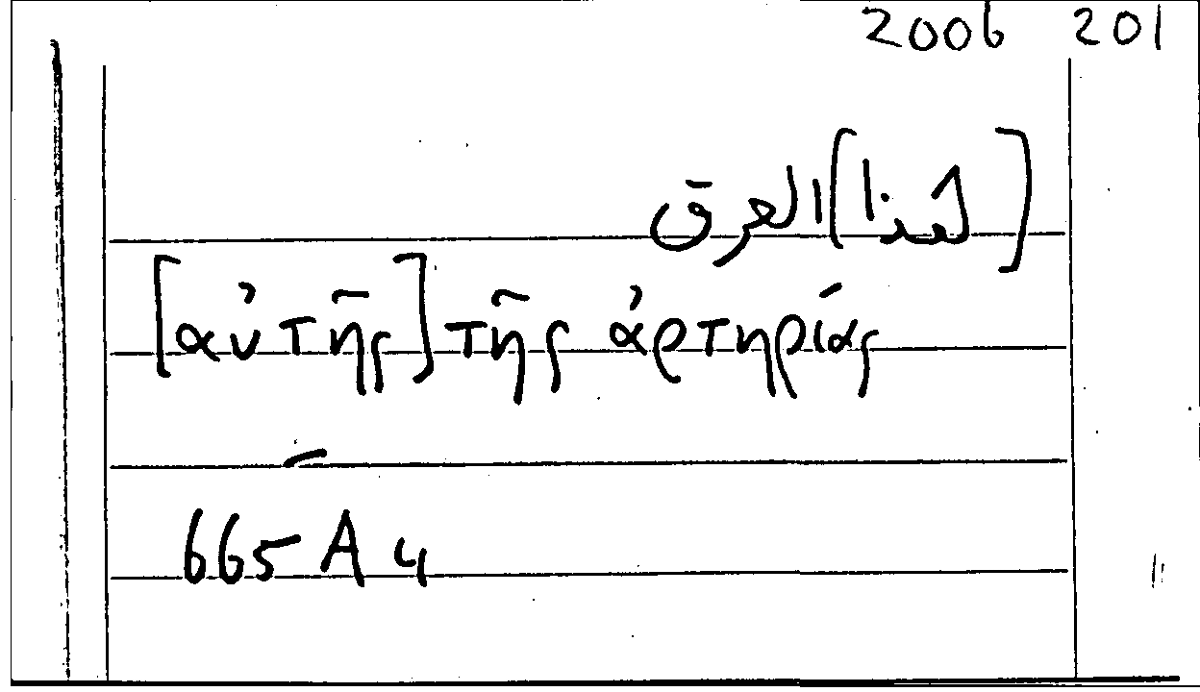 2006 201
[لهذا] العرق
[αὐτῆς] τῆς ἀρτηρίας
665 A 4